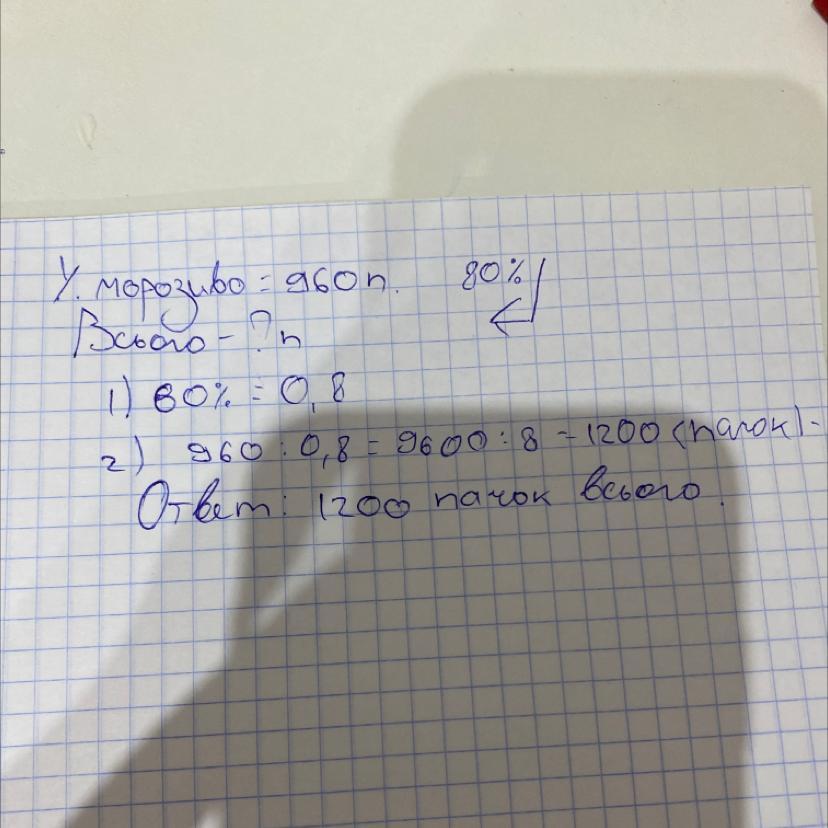 У. морозиво = 960 п. 80%
Всього - ? п
1) 80% = 0,8
2) 960 : 0,8 = 9600 : 8 = 1200 (пачок) -
Ответ: 1200 пачок всього.